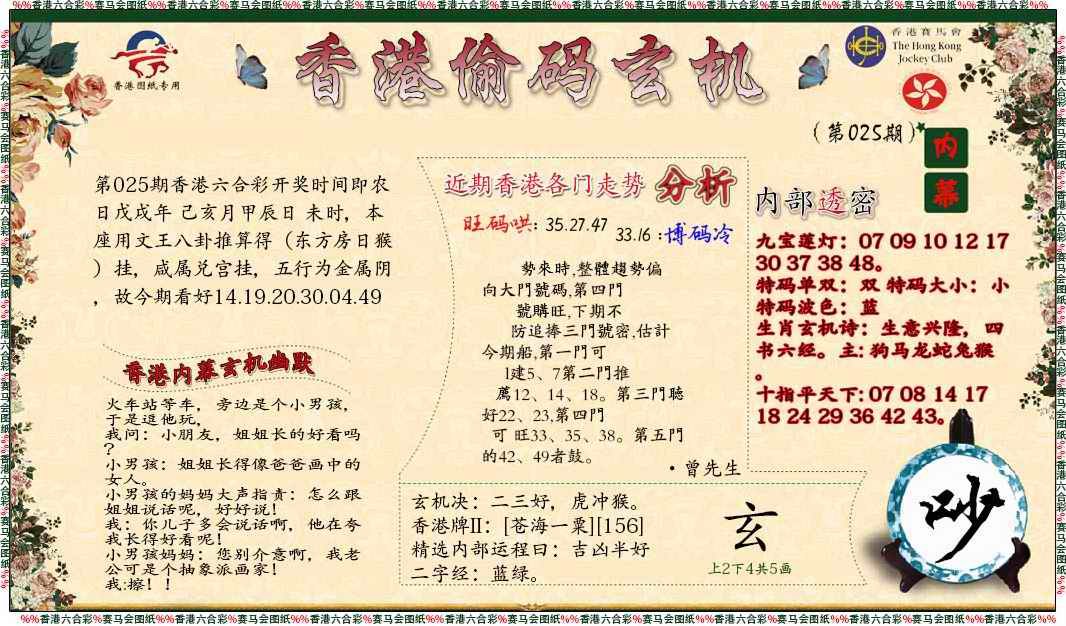 %%香港六合彩%赛马会图纸%%香港六合彩%赛马会图纸%%香港六合彩%赛马会图纸%%香港六合彩%赛马会图纸%%香港六合彩%赛马会图纸%%香港六合彩%赛马会图纸%%香港六合彩%%
香港图纸专用
香港偷码玄机
香港賽馬會
The Hong Kong
Jockey Club
(第025期)
内幕
第025期香港六合彩开奖时间即农
日戊戌年 己亥月甲辰日 未时，本
座用文王八卦推算得（东方房日猴
）挂，咸属兑宫挂，五行为金属阴
，故今期看好14.19.20.30.04.49
香港内幕玄机幽默
火车站等车，旁边是个小男孩，
于是逗他玩，
我问：小朋友，姐姐长的好看吗
？
小男孩：姐姐长得像爸爸画中的
女人。
小男孩的妈妈大声指责：怎么跟
姐姐说话呢，好好说！
我：你儿子多会说话啊，他在夸
我长得好看呢！
小男孩妈妈：您别介意啊，我老
公可是个抽象派画家！
我:擦！！
近期香港各门走势 分析
旺码哄: 35.27.47
33.16 :博码冷
勢來時,整體趨勢偏
向大門號碼,第四門
號購旺,下期不
防追捧三門號密,估計
今期船,第一門可
1建5、7第二門推
薦12、14、18。第三門聴
好22、23,第四門
可 旺33、35、38。第五門
的42、49者鼓。
·曾先生
内部透密
九宝莲灯：07 09 10 12 17
30 37 38 48。
特码单双：双 特码大小：小
特码波色：蓝
生肖玄机诗：生意兴隆，四
书六经。主: 狗马龙蛇兔猴
。
十指平天下: 07 08 14 17
18 24 29 36 42 43。
玄机决：二三好，虎冲猴。
香港牌II：[苍海一粟][156]
精选内部运程曰：吉凶半好
二字经：蓝绿。
玄
上2下4共5画
吵
%%香港六合彩%赛马会图纸%%香港六合彩%赛马会图纸%%香港六合彩%赛马会图纸%%香港六合彩%赛马会图纸%%香港六合彩%赛马会图纸%%香港六合彩%赛马会图纸%%香港六合彩%%